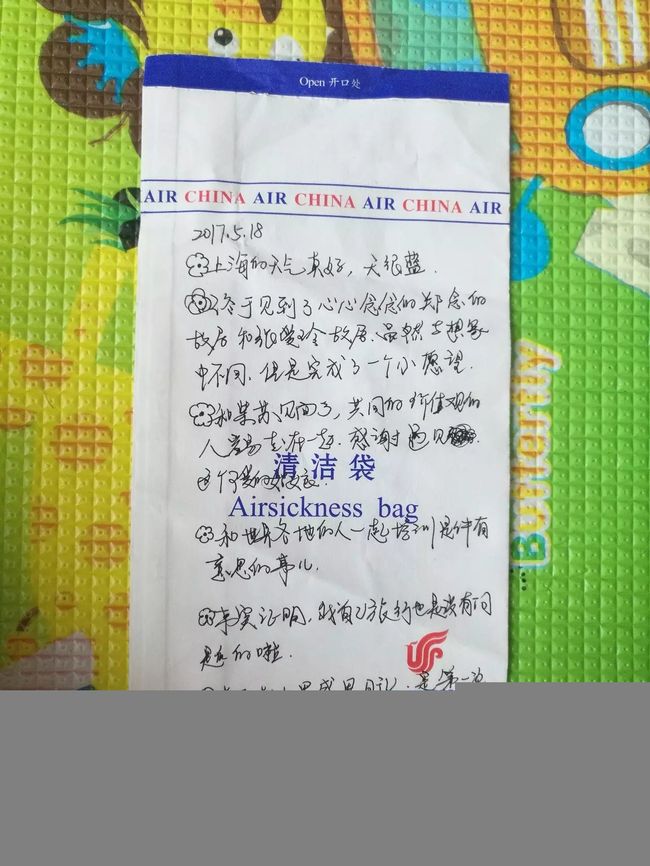 Open 开口处
AIR CHINA AIR CHINA AIR CHINA AIR
2017.5.18
上海的天气真好，天很蓝.
终于见到了心心念念的郑念的
故居和张爱玲故居.虽然与想象
中不同.但是完成了一个小愿望.
和紫苏见面了，共同的价值观的
人容易走在一起.感谢遇见
这个可爱的姑娘.
清洁袋
Airsickness bag
和世界各地的人一起培训是件有
意思的事儿.
事实证明，我自己旅行也是没有问
题的啦.
Butterfly